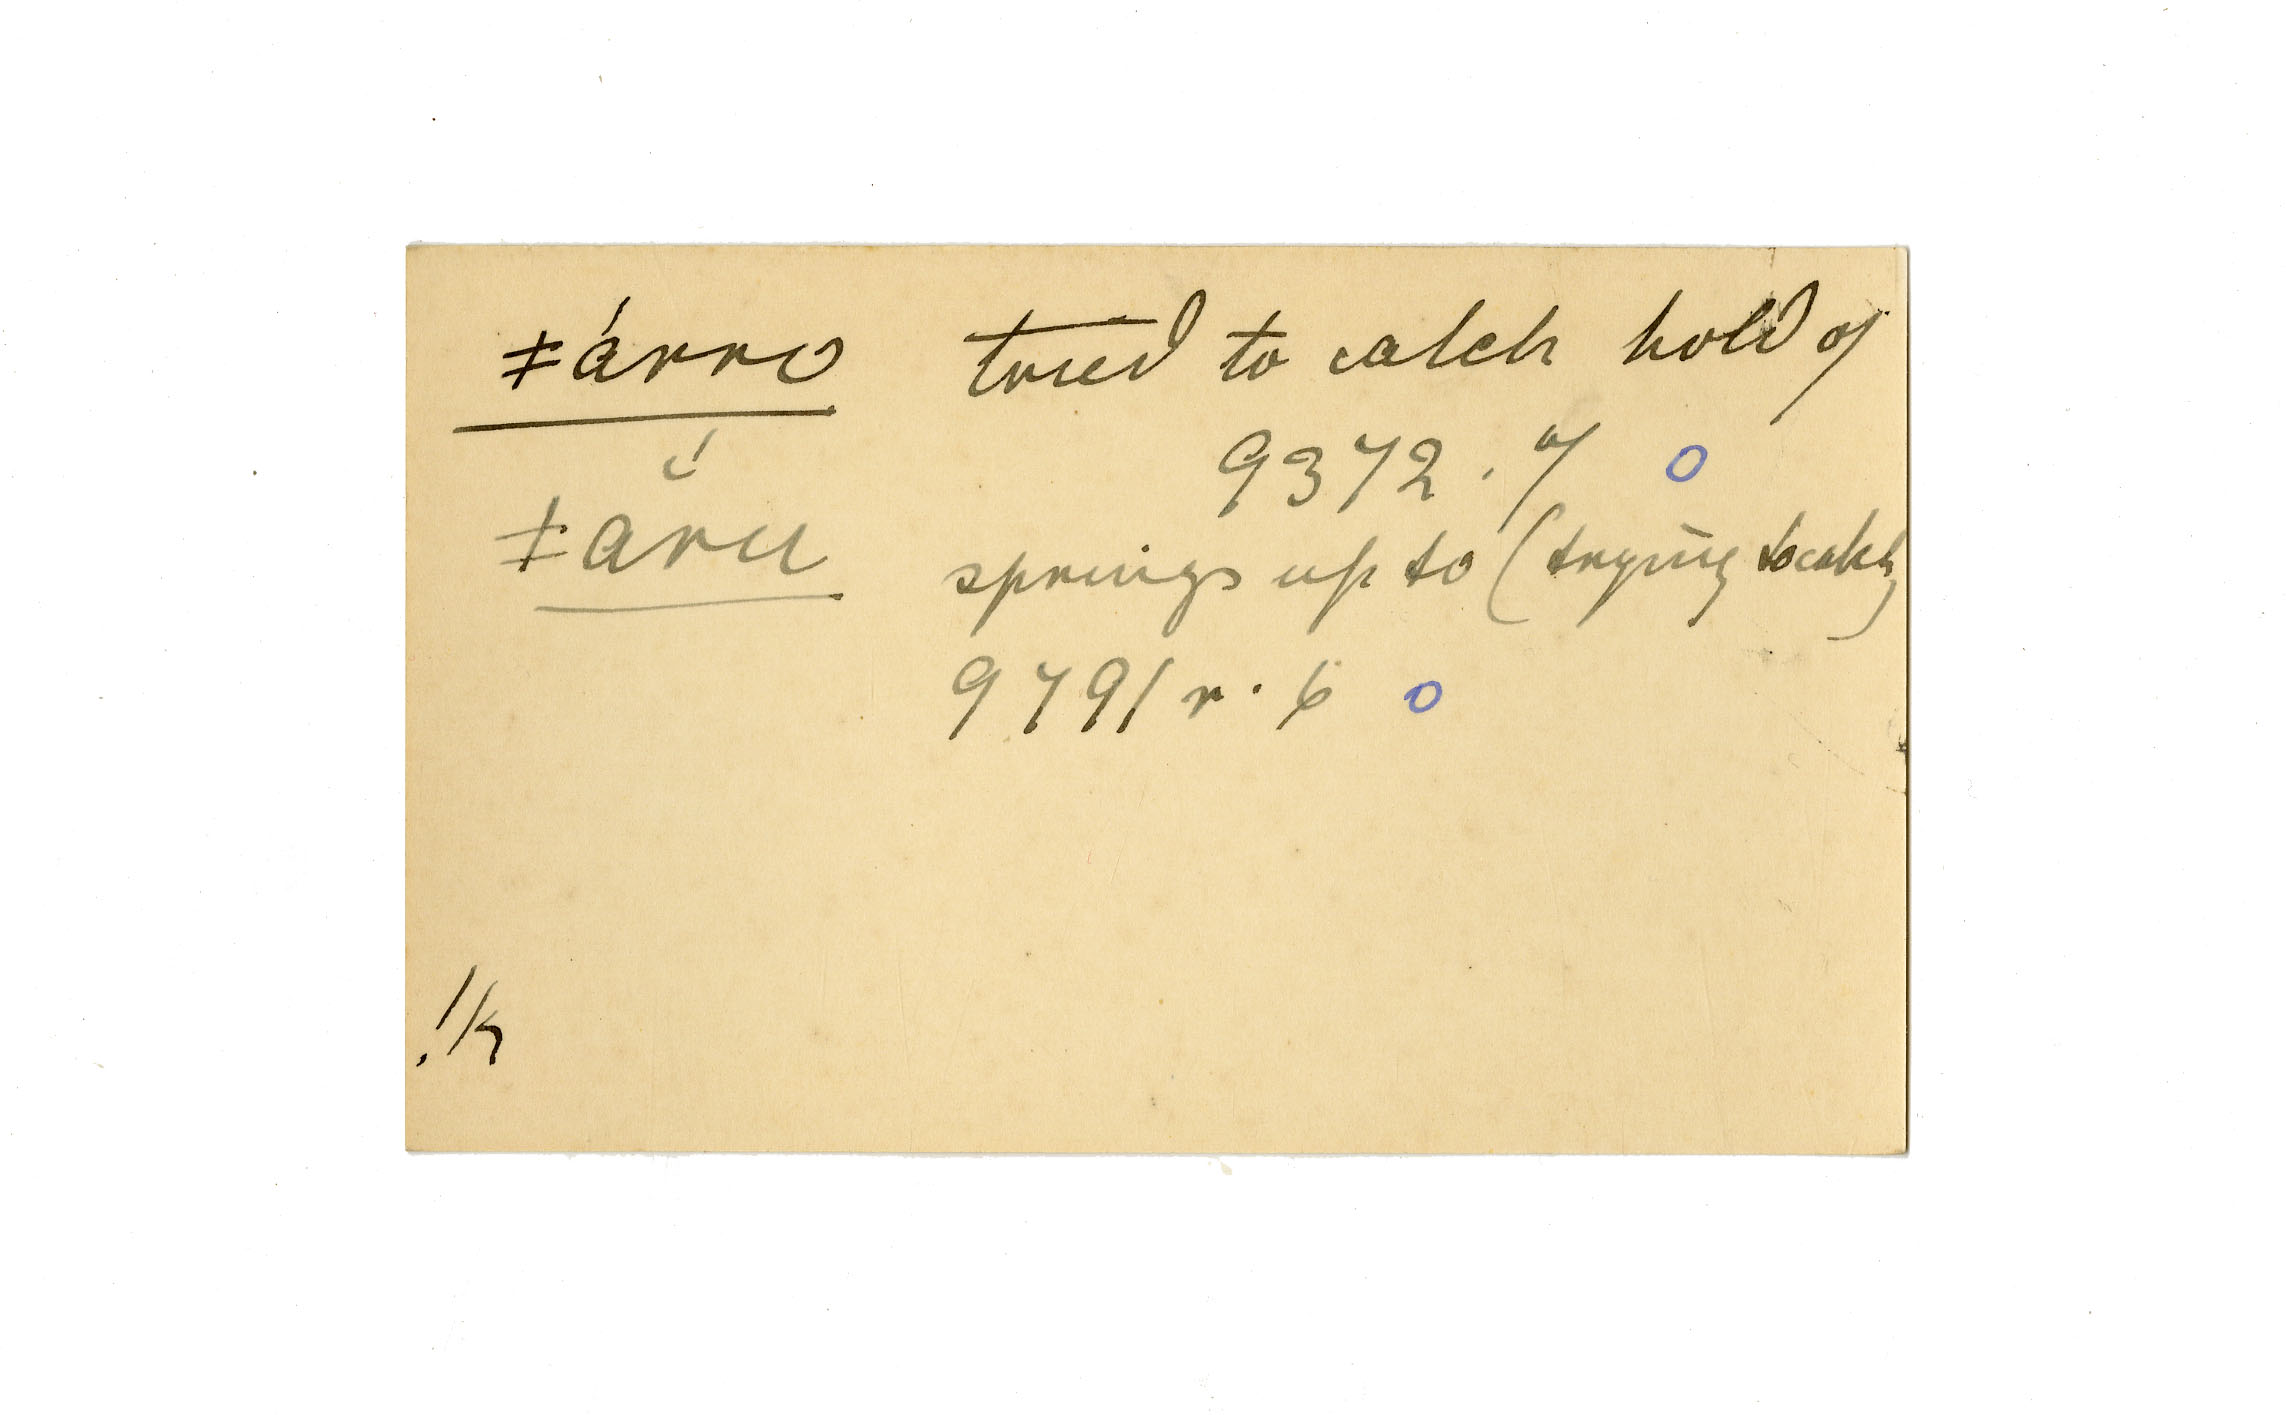 ǂárro tried to catch hold of
9372. of o
ǂăŕu springs up to (trying to catch)
9791 r. 6 o
!k